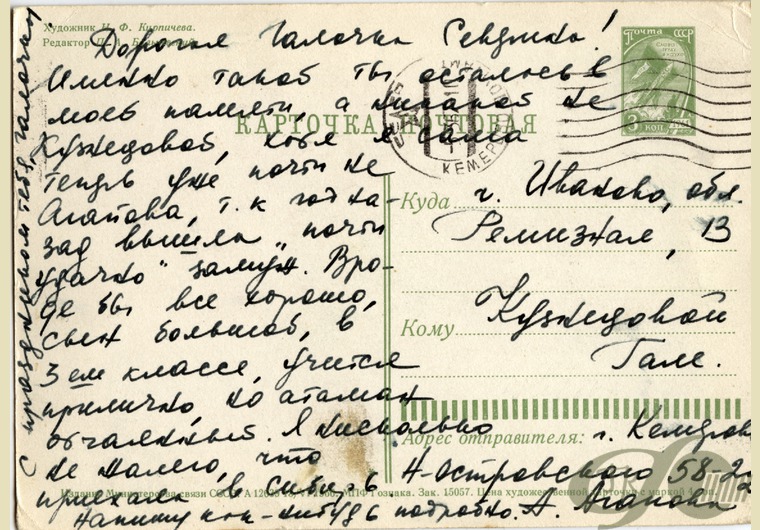 Художник И. Ф. Кирпичева.
Редактор
Дорогая Галочка Сендюко!
Именно такой ты осталась в
моей памяти, а никакой не
Кужедовой, хотя я сама
теперь уже почти не
Агапова, т. к год на-
зад вышла „почти
удачно" замуж. Вро-
де бы все хорошо,
сын большой, в
3ем классе, учится
прилично, но атаман
отчаянный. Я нисколько
не жалею, что
приехала в Сибирь
Напишу как-нибудь подробно. А. Агапова
С праздником тебя, Галочка!
КАРТОЧКА ПОЧТОВАЯ
ПОЧТА СССР
3 КОП
КЕМЕРОВО
Куда г. Иваново, обл.
Ремизная, 13
Кому Кужедовой
Гале.
Адрес отправителя: г. Кемерово
Н-Островского 58-2
Издание Министерства связи СССР. А 12 МПФ Гознака. Зак. 15057. Цена художественной карточки с маркой 4 коп.